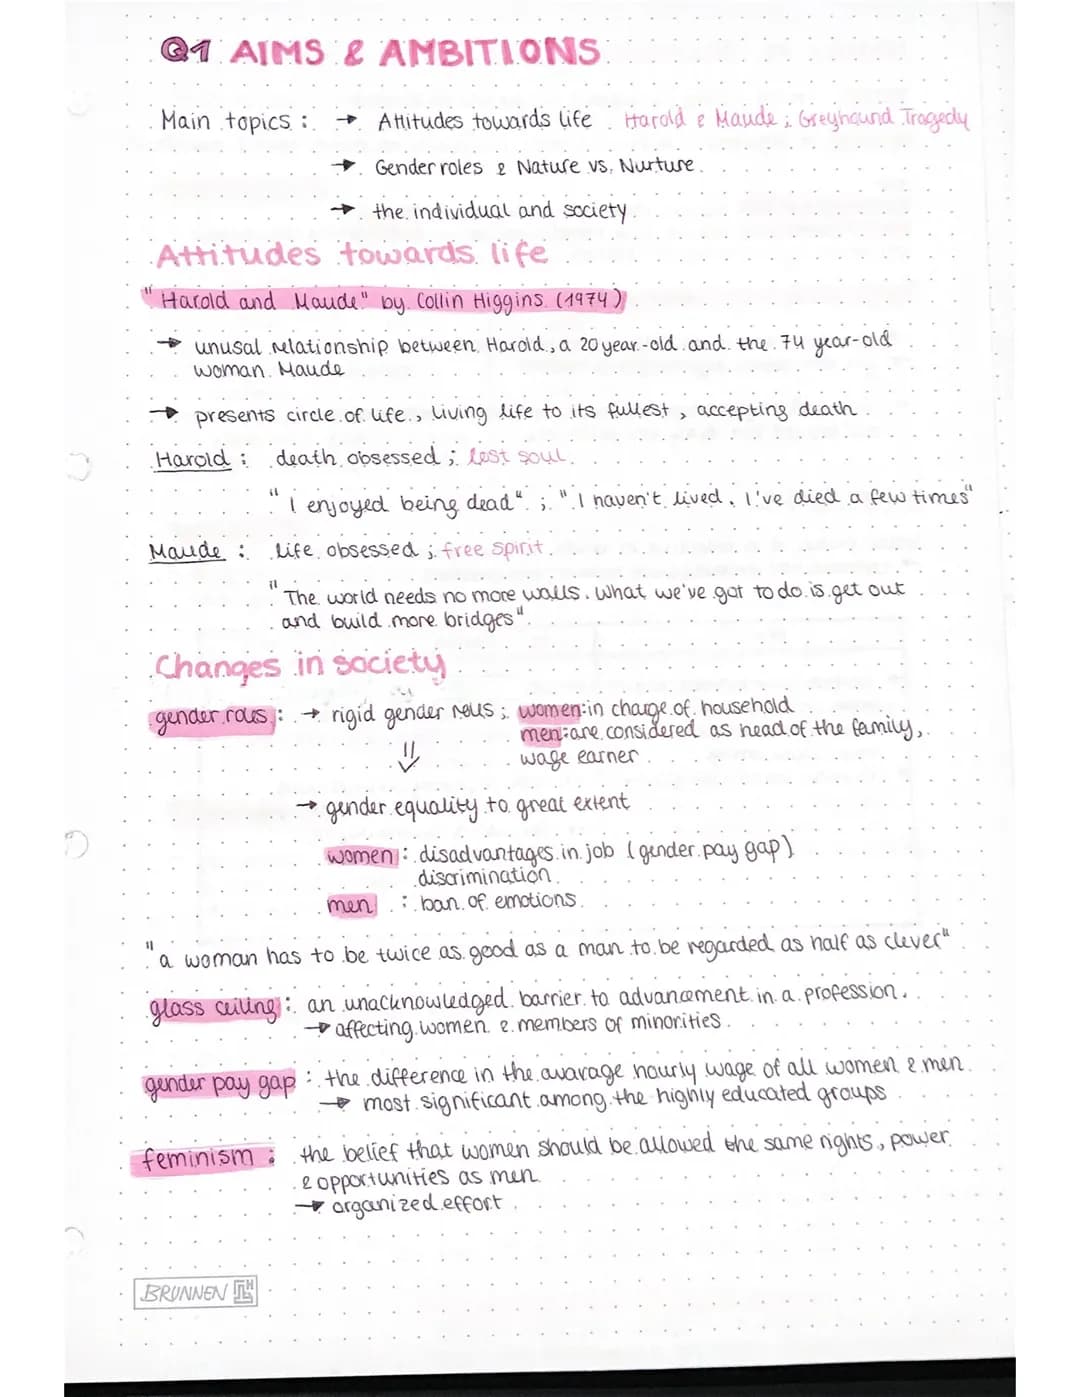 Q1 AIMS & AMBITIONS
Main topics : → Attitudes towards life Harold & Maude ; Greyhound Tragedy
→ Gender roles & Nature vs. Nurture
→ the individual and society
Attitudes towards life
"Harold and Maude" by Collin Higgins (1974)
→ unusal relationship between Harold, a 20 year-old and the 74 year-old
woman Maude
→ presents circle of life, living life to its fullest, accepting death
Harold : death obsessed ; lost soul
"I enjoyed being dead" ; "I haven't lived, I've died a few times"
Maude : life obsessed ; free spirit
"The world needs no more walls. What we've got to do is get out
and build more bridges"
Changes in society
gender roles : → rigid gender roles ; women: in charge of household
men: are considered as head of the family,
wage earner
⇓
→ gender equality to great extent
women : disadvantages in job (gender pay gap)
discrimination
men : ban of emotions
"a woman has to be twice as good as a man to be regarded as half as clever"
glass ceiling : an unacknowledged barrier to advancement in a profession.
→ affecting women & members of minorities
gender pay gap : the difference in the avarage hourly wage of all women & men
→ most significant among the highly educated groups
feminism : the belief that women should be allowed the same rights, power
& opportunities as men
→ organized effort
BRUNNEN